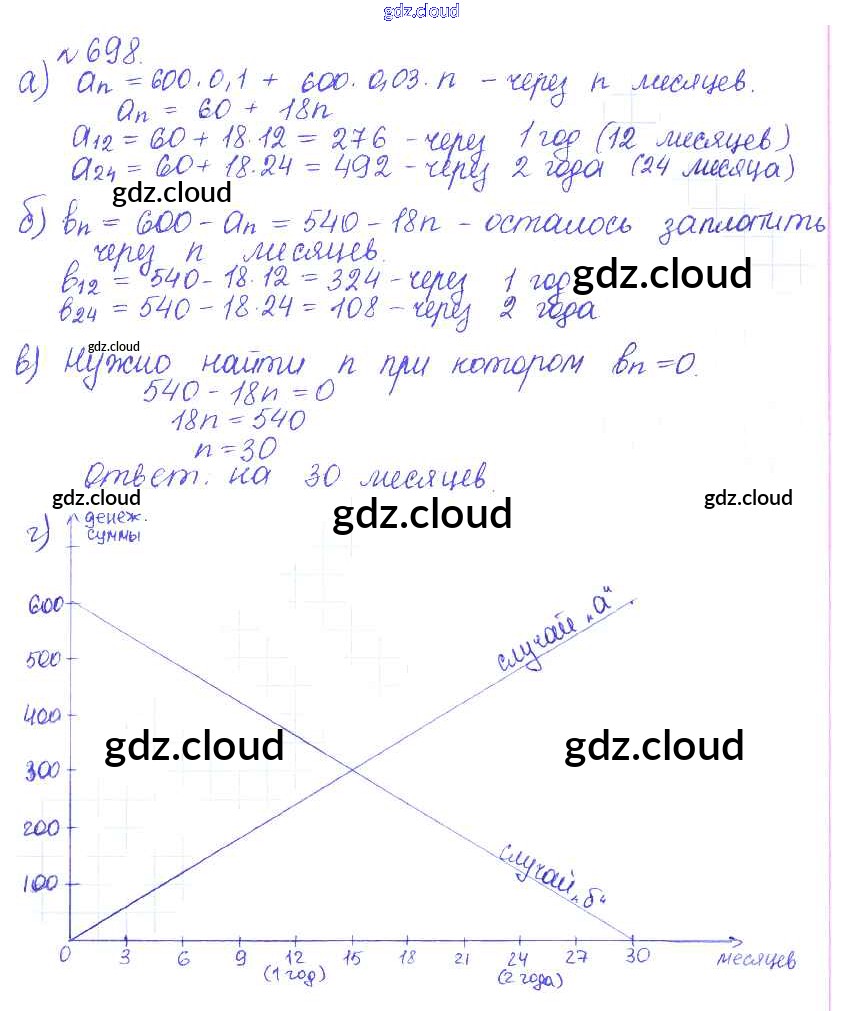 gdz.cloud
№698.
а) aₙ = 600·0,1 + 600·0,03·n – через n месяцев.
aₙ = 60 + 18n
a₁₂ = 60 + 18·12 = 276 – через 1 год (12 месяцев)
a₂₄ = 60 + 18·24 = 492 – через 2 года (24 месяца)
gdz.cloud
б) bₙ = 600 – aₙ = 540 – 18n – осталось заплатить
через n месяцев.
b₁₂ = 540 – 18·12 = 324 – через 1 год
gdz.cloud
b₂₄ = 540 – 18·24 = 108 – через 2 года
gdz.cloud
в) Нужно найти n при котором bₙ = 0.
540 – 18n = 0
18n = 540
n = 30
Ответ: на 30 месяцев.
gdz.cloud gdz.cloud gdz.cloud
г) денеж.
суммы
600
500
400
300
200
100
случай „а“
gdz.cloud gdz.cloud
случай „б“
0 3 6 9 12 15 18 21 24 27 30 месяцев
(1 год) (2 года)